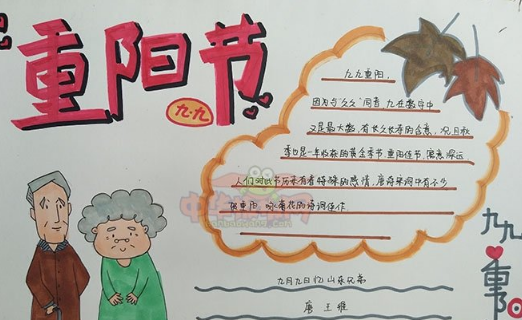 重阳节
九.九
九九重阳，
因为与"久久"同音，九在数字中
又是最大数，有长久长寿的含意，况且秋
季也是一年收获的黄金季节，重阳佳节，寓意深远
人们对此节历来有着特殊的感情，唐诗宋词中有不少
贺重阳，咏菊花的诗词佳作
九月九日忆山东兄弟
唐 王维
九九
重阳